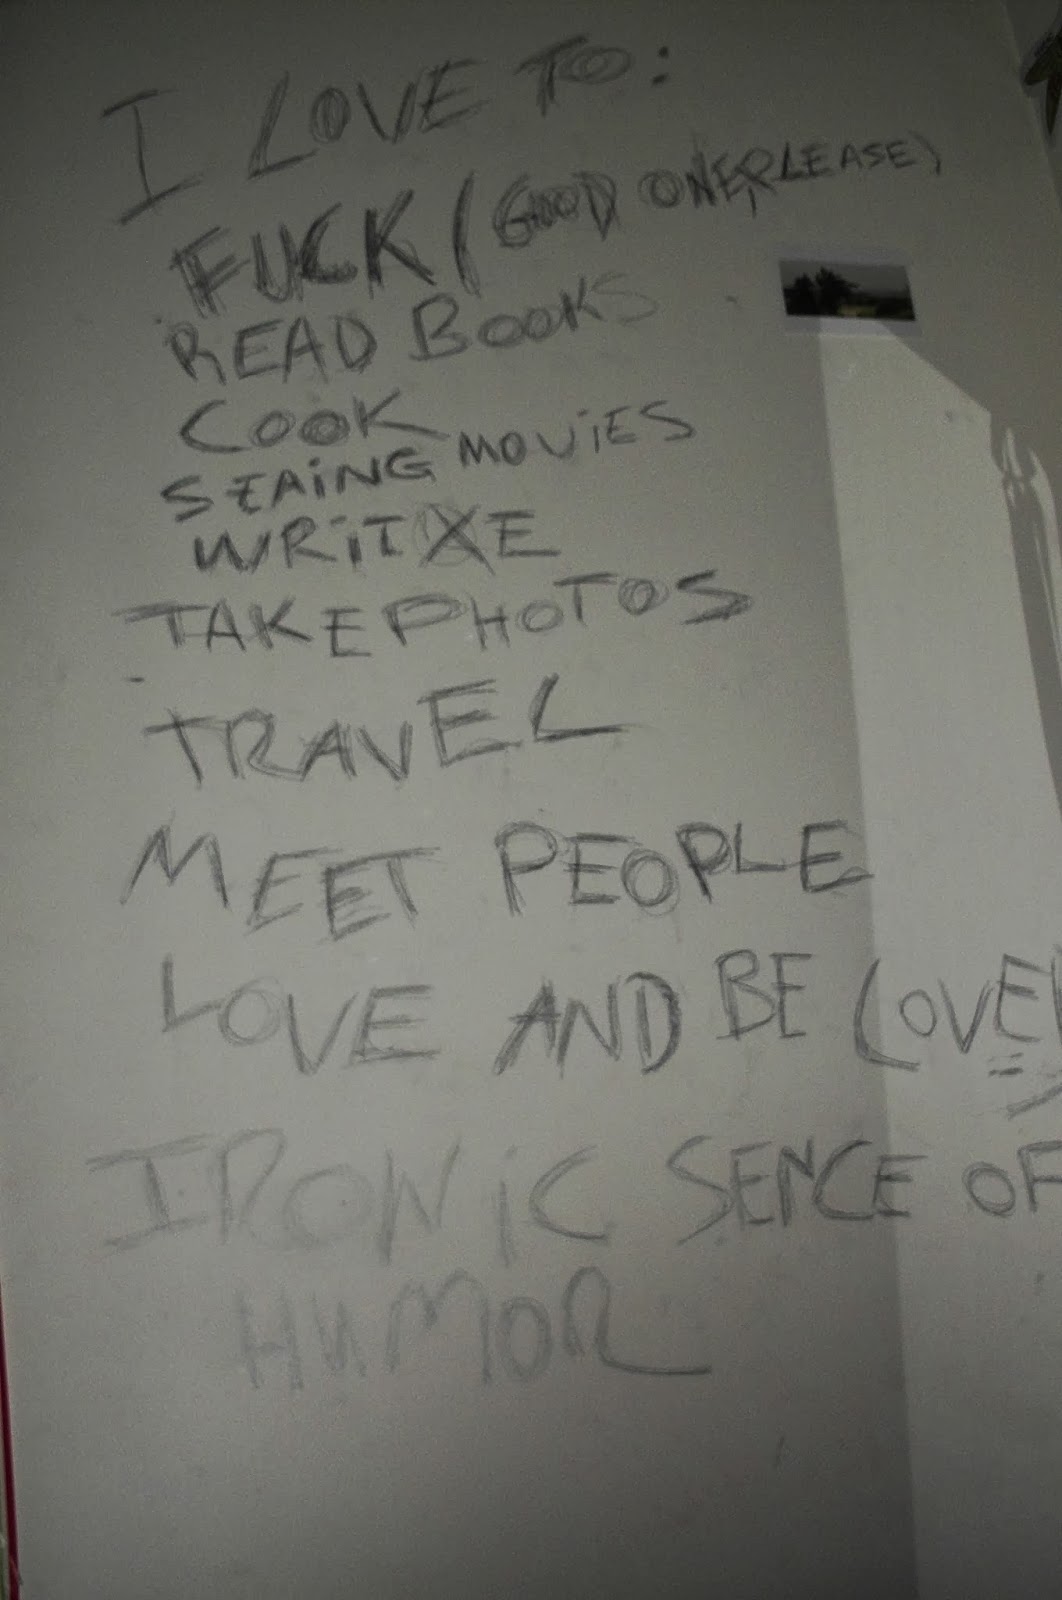 I LOVE TO:
FUCK/(GOOD ONE,PLEASE)
READ BOOKS
COOK
SEAiNG MOViES
WRiTXE
TAKE PHOTOS
TRAVEL
MEET PEOPLE
LOVE AND BE LOVED
IRONiC SENCE OF
HUMOR